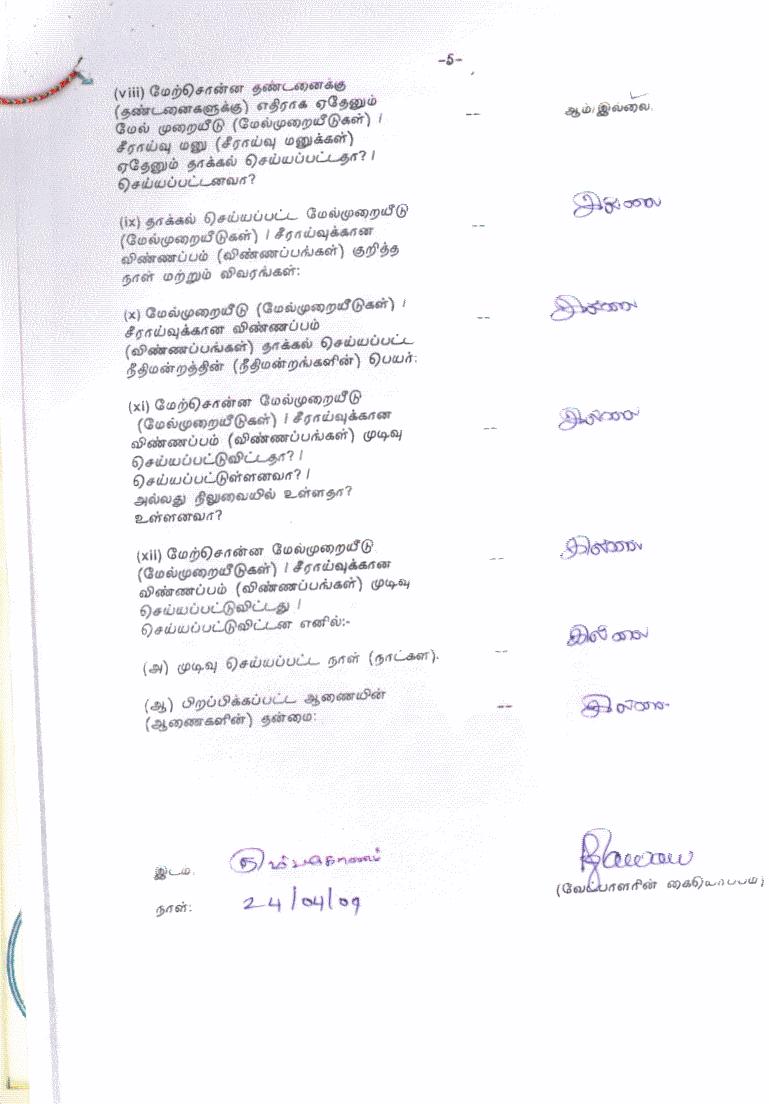 -5-
(viii) மேற்சொன்ன தண்டனைக்கு
(தண்டனைகளுக்கு) எதிராக ஏதேனும்
மேல் முறையீடு (மேல்முறையீடுகள்) / -- ஆம்/இல்லை.
சீராய்வு மனு (சீராய்வு மனுக்கள்)
ஏதேனும் தாக்கல் செய்யப்பட்டதா? /
செய்யப்பட்டனவா?
இல்லை
(ix) தாக்கல் செய்யப்பட்ட மேல்முறையீடு --
(மேல்முறையீடுகள்) / சீராய்வுக்கான
விண்ணப்பம் (விண்ணப்பங்கள்) குறித்த
நாள் மற்றும் விவரங்கள்:
(x) மேல்முறையீடு (மேல்முறையீடுகள்) / -- இல்லை
சீராய்வுக்கான விண்ணப்பம்
(விண்ணப்பங்கள்) தாக்கல் செய்யப்பட்ட
நீதிமன்றத்தின் (நீதிமன்றங்களின்) பெயர்:
(xi) மேற்சொன்ன மேல்முறையீடு
(மேல்முறையீடுகள்) / சீராய்வுக்கான -- இல்லை
விண்ணப்பம் (விண்ணப்பங்கள்) முடிவு
செய்யப்பட்டுவிட்டதா? /
செய்யப்பட்டுள்ளனவா? /
அல்லது நிலுவையில் உள்ளதா?
உள்ளனவா?
(xii) மேற்சொன்ன மேல்முறையீடு -- இல்லை
(மேல்முறையீடுகள்) / சீராய்வுக்கான
விண்ணப்பம் (விண்ணப்பங்கள்) முடிவு
செய்யப்பட்டுவிட்டது /
செய்யப்பட்டுவிட்டன எனில்:-
(அ) முடிவு செய்யப்பட்ட நாள் (நாட்கள்). -- இல்லை
(ஆ) பிறப்பிக்கப்பட்ட ஆணையின் -- இல்லை
(ஆணைகளின்) தன்மை:
இடம். கும்பகோணம்
நாள்: 24/04/09
(வேட்பாளரின் கையொப்பம்)